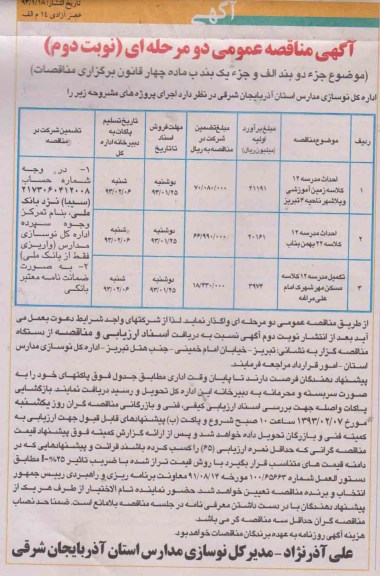 آگهی
تاریخ انتشار: ۹۳/۱/۱۸
عصر آزادی ۱۴ م الف
آگهی مناقصه عمومی دو مرحله ای (نوبت دوم)
(موضوع جزء دو بند الف و جزء یک بند ب ماده چهار قانون برگزاری مناقصات)
اداره کل نوسازی مدارس استان آذربایجان شرقی در نظر دارد اجرای پروژه های مشروحه زیر را
ردیف موضوع مناقصه مبلغ برآورد اولیه (میلیون ریال) مبلغ تضمین شرکت در مناقصه به ریال مهلت فروش اسناد تا تاریخ تاریخ تسلیم پاکات به دبیرخانه اداره کل تضمین شرکت در مناقصه
۱ احداث مدرسه ۱۲ کلاسه زمین آموزشی ویلاشهر ناحیه ۴ تبریز ۲۱۱۹۱ ۷۰/۰۸۰/۰۰۰ دوشنبه ۹۳/۰۱/۲۵ شنبه ۹۳/۰۲/۰۶
۲ احداث مدرسه ۱۲ کلاسه ۲۲ بهمن بناب ۲۰۱۶۱ ۶۶/۹۹۰/۰۰۰ دوشنبه ۹۳/۰۱/۲۵ شنبه ۹۳/۰۲/۰۶
۳ تکمیل مدرسه ۱۲ کلاسه مسکن مهر شهرک امام علی مراغه ۳۹۷۴ ۱۸/۳۳۰/۰۰۰ دوشنبه ۹۳/۰۱/۲۵ شنبه ۹۳/۰۲/۰۶
۱- در وجه شماره حساب ۲۱۷۳۰۶۰۴۱۲۰۰۸ (سیبا) نزد بانک ملی، بنام تمرکز وجوه سپرده اداره کل نوسازی مدارس (واریزی فقط از بانک ملی)
۲- به صورت ضمانت نامه معتبر بانکی
از طریق مناقصه عمومی دو مرحله ای واگذار نماید لذا از شرکتهای واجد شرایط دعوت بعمل می
آید بعد از انتشار نوبت دوم آگهی نسبت به دریافت اسناد ارزیابی و مناقصه از دستگاه
مناقصه گزار به نشانی: تبریز - خیابان امام خمینی - جنب هتل تبریز - اداره کل نوسازی مدارس
استان - امور قرارداد مراجعه فرمایند.
پیشنهاد دهندگان فرصت دارند تا پایان وقت اداری مطابق جدول فوق پاکتهای خود را به
صورت سربسته و محرمانه به دبیرخانه این اداره کل تحویل و رسید دریافت نمایند. بازگشایی
پاکات واصله جهت بررسی اسناد ارزیابی کیفی، فنی و بازرگانی مناقصه گران روز یکشنبه
مورخ ۱۳۹۳/۰۲/۰۷ ساعت ۱۰ صبح شروع و پاکت (ب) پیشنهادهای قابل قبول جهت ارزیابی به
کمیته فنی و بازرگان تحویل داده خواهد شد و پس از ارائه گزارش کمیته فوق پیشنهاد قیمت
مناقصه گرانی که حداقل نمره ارزیابی (۶۵) را کسب کرده باشند قرائت و پیشنهادهایی که در
دامنه قیمت های متناسب قرار بگیرد با روش قیمت تراز شده با ضریب تاثیر ۲۵%= I مطابق
دستور العمل شماره ۱۰۰/۶۵۶۴۳ مورخه ۹۱/۰۸/۱۴ معاونت برنامه ریزی و راهبردی رییس جمهور
انتخاب و برنده مناقصه تعیین خواهد شد. حضور نماینده تام الاختیار از طرف هر یک از
پیشنهاد دهندگان با در دست داشتن معرفی نامه در جلسه مناقصه بلامانع است. ضمنا حد نصاب
مناقصه گران حداقل سه مناقصه گر می باشد.
هزینه آگهی روزنامه به عهده برندگان مناقصات خواهد بود.
علی آذرنژاد - مدیر کل نوسازی مدارس استان آذربایجان شرقی